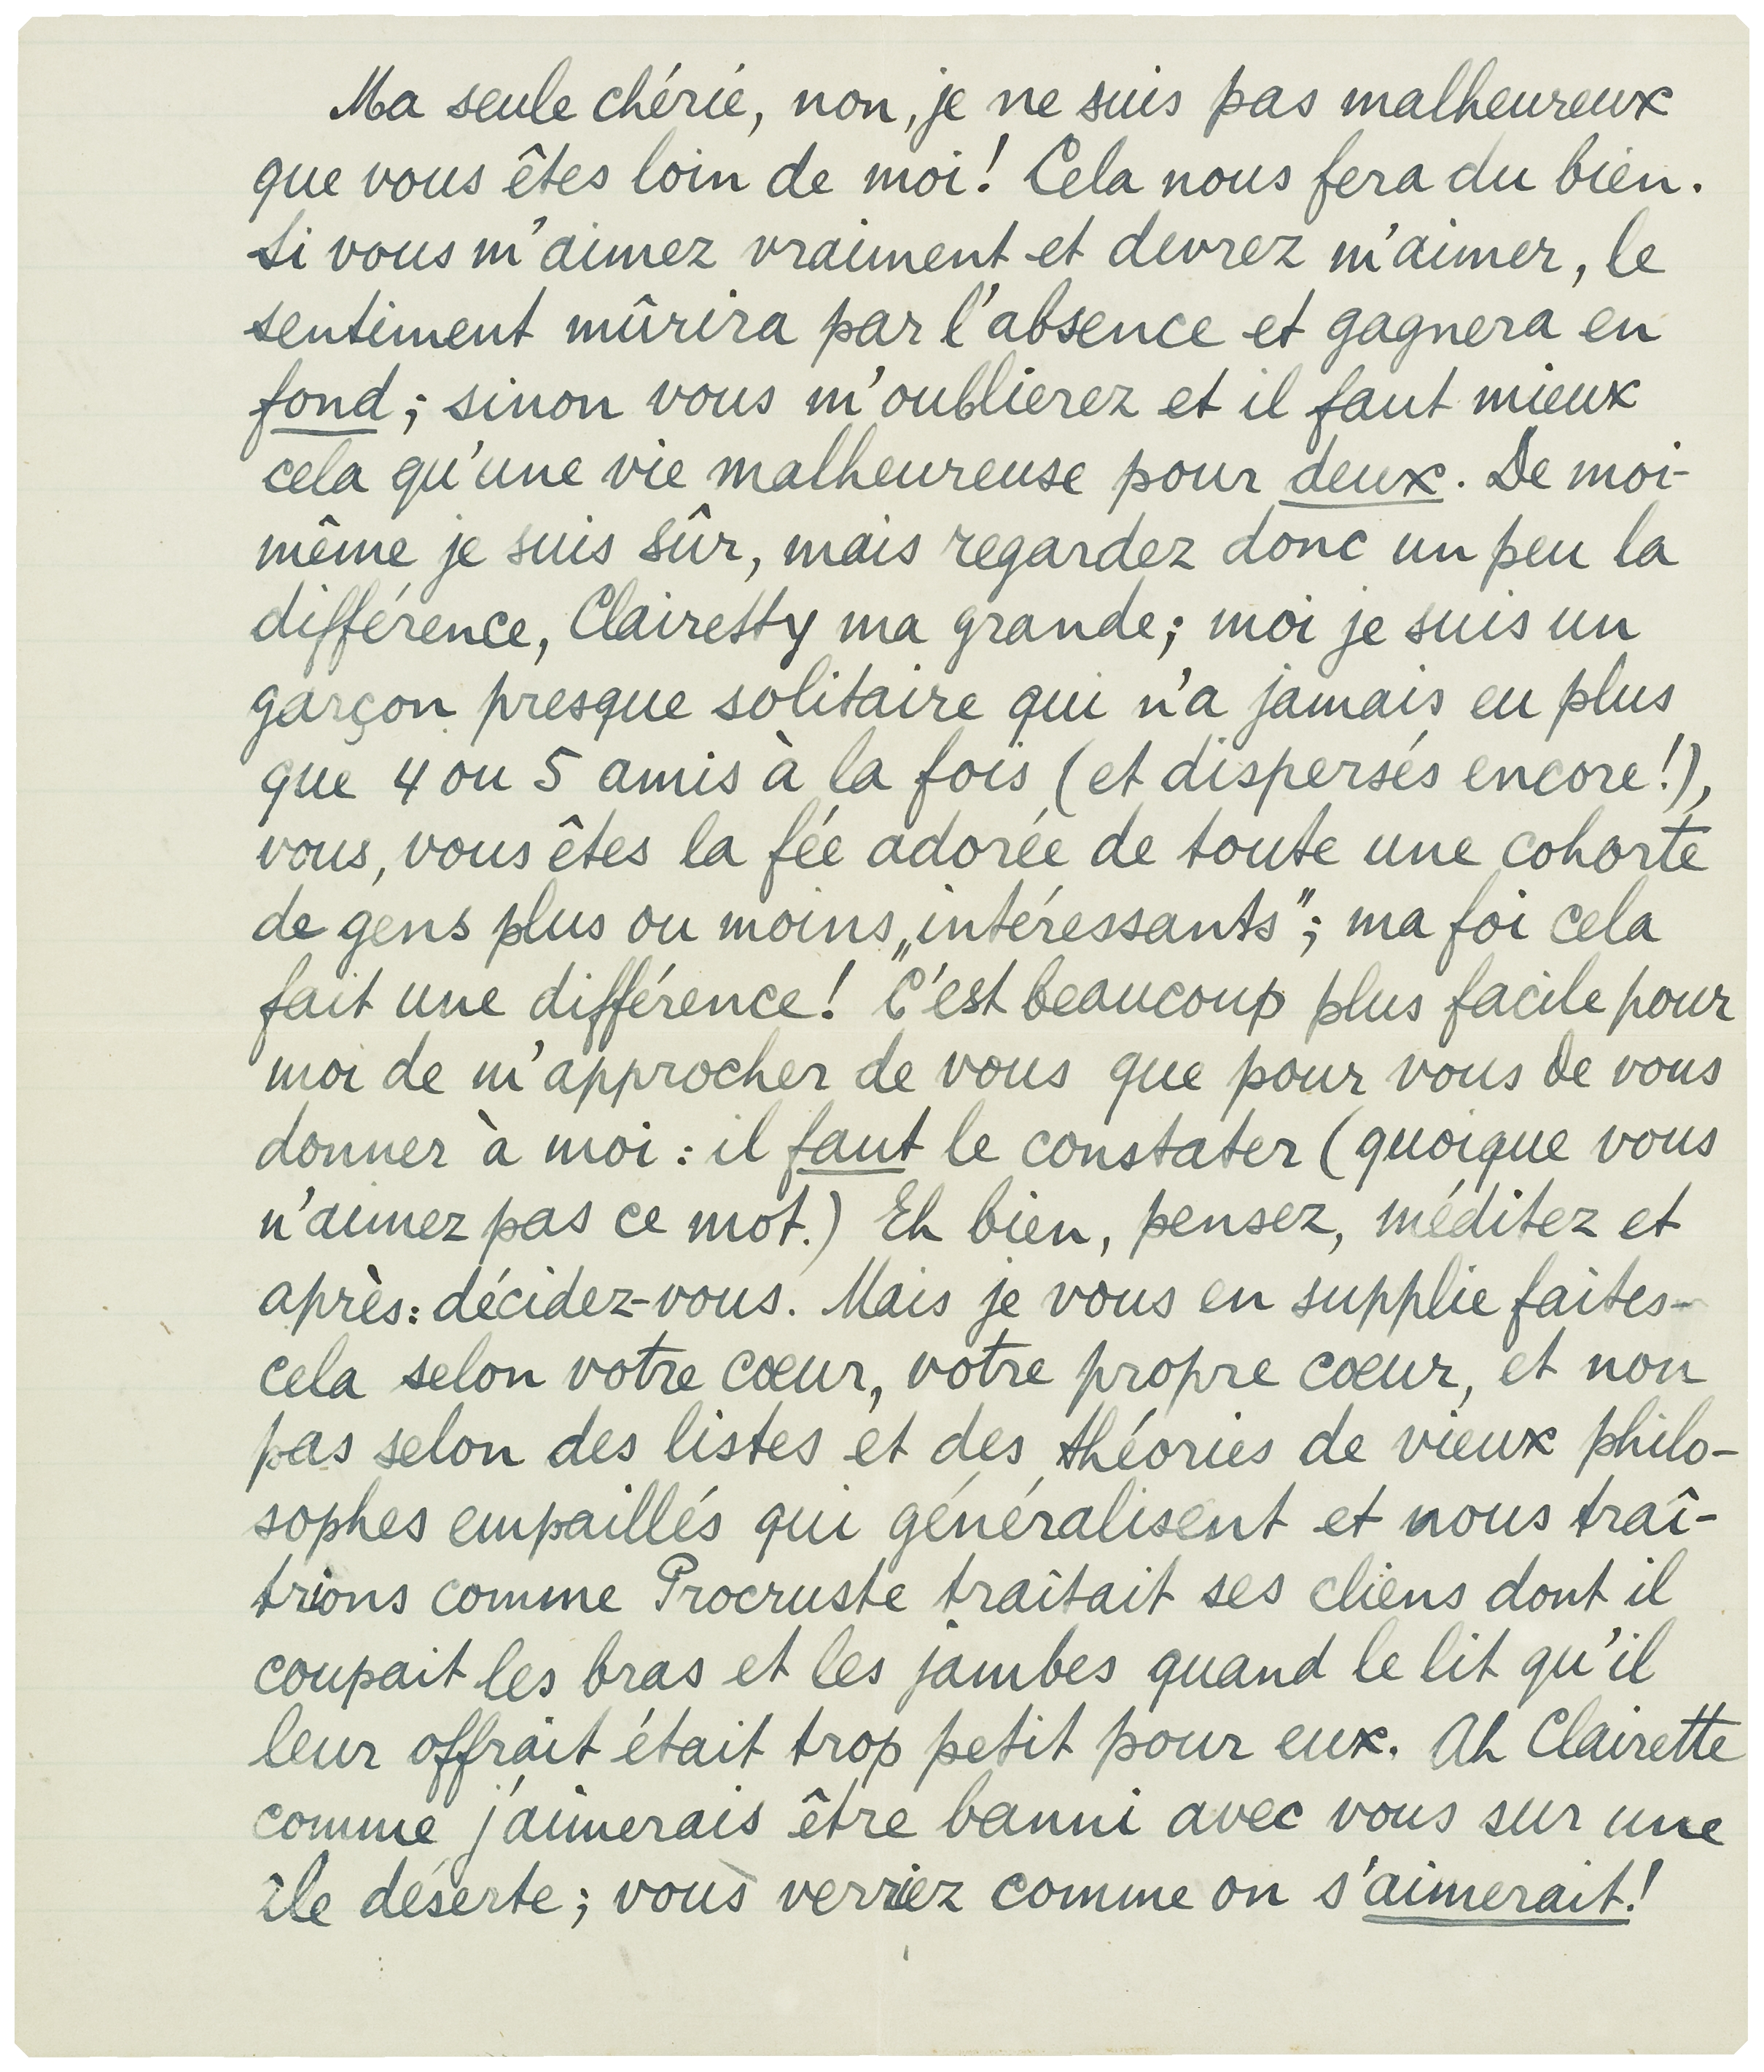 Ma seule chérie, non, je ne suis pas malheureux
que vous êtes loin de moi! Cela nous fera du bien.
Si vous m'aimez vraiment et devrez m'aimer, le
sentiment mûrira par l'absence et gagnera en
fond; sinon vous m'oublierez et il faut mieux
cela qu'une vie malheureuse pour deux. De moi-
même je suis sûr, mais regardez donc un peu la
différence, Clairetty ma grande; moi je suis un
garçon presque solitaire qui n'a jamais eu plus
que 4 ou 5 amis à la fois (et dispersés encore!),
vous, vous êtes la fée adorée de toute une cohorte
de gens plus ou moins „intéressants"; ma foi cela
fait une différence! C'est beaucoup plus facile pour
moi de m'approcher de vous que pour vous de vous
donner à moi: il faut le constater (quoique vous
n'aimez pas ce mot.) Eh bien, pensez, méditez et
après: décidez-vous. Mais je vous en supplie faites-
cela selon votre cœur, votre propre cœur, et non
pas selon des listes et des théories de vieux philo-
sophes empaillés qui généralisent et nous traî-
trions comme Procruste traîtait ses cliens dont il
coupait les bras et les jambes quand le lit qu'il
leur offrait était trop petit pour eux. Ah Clairette
comme j'aimerais être banni avec vous sur une
île déserte; vous verriez comme on s'aimerait!